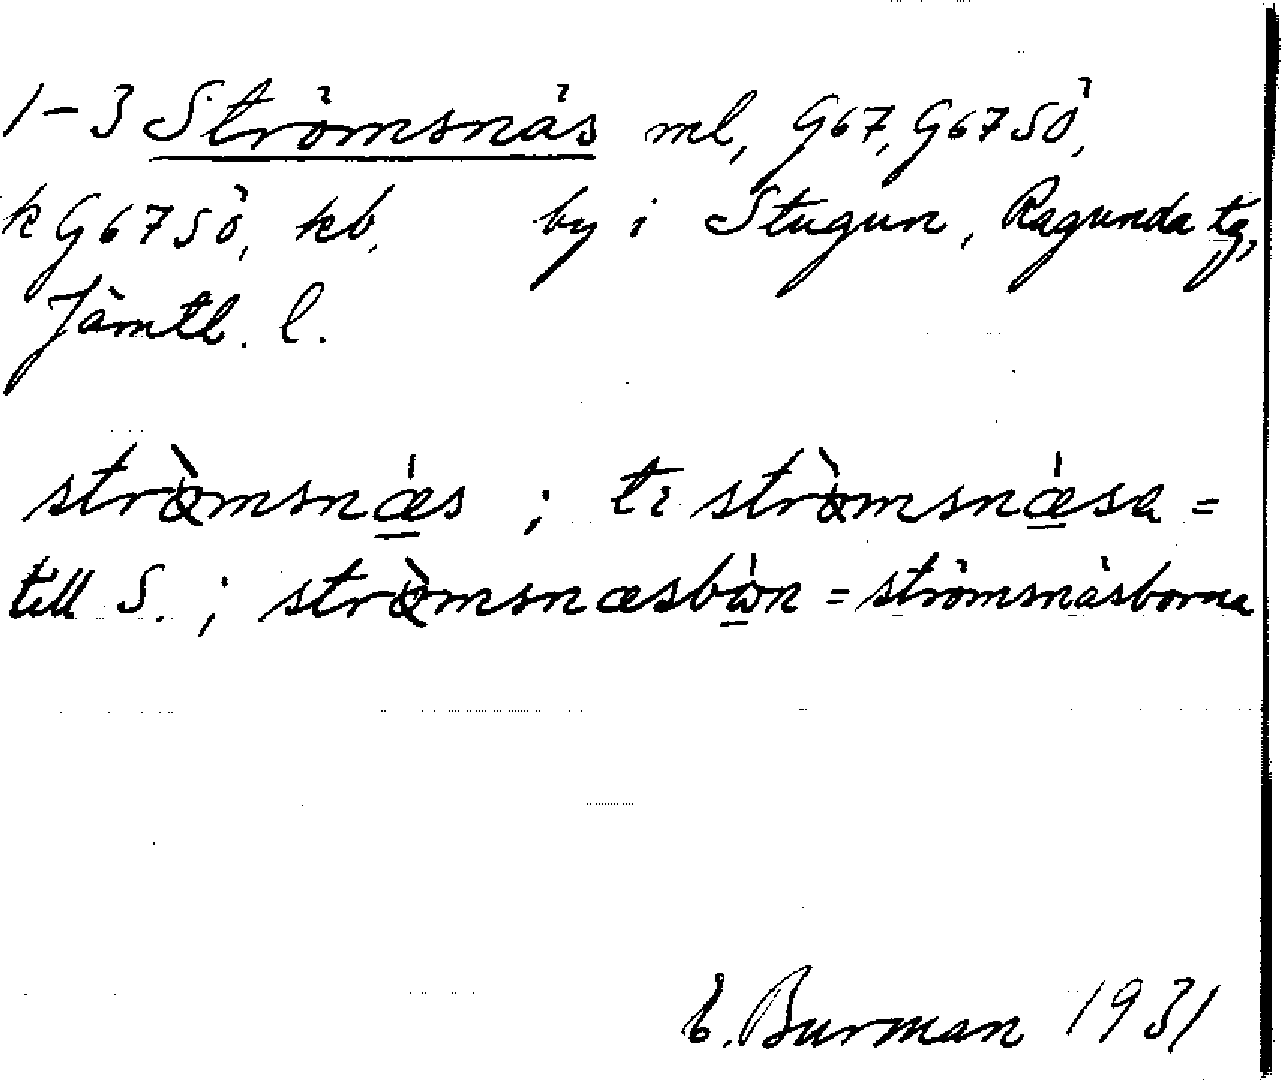 1-3 Strömsnäs ml, G67, G67SÖ,
k G67SÖ, kb, by i Stugun, Ragunda tg,
Jämtl. l.
strò̀msnæ̲s ; ti strò̀msnæ̲sa =
till S. ; strò̀msnæsbώn = strömsnäsborna
E. Burman 1931